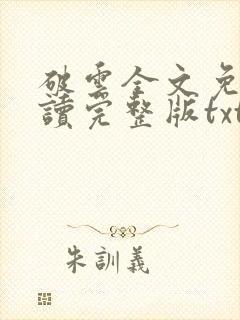 破雲全文免
讀完整版txt
朱訓義